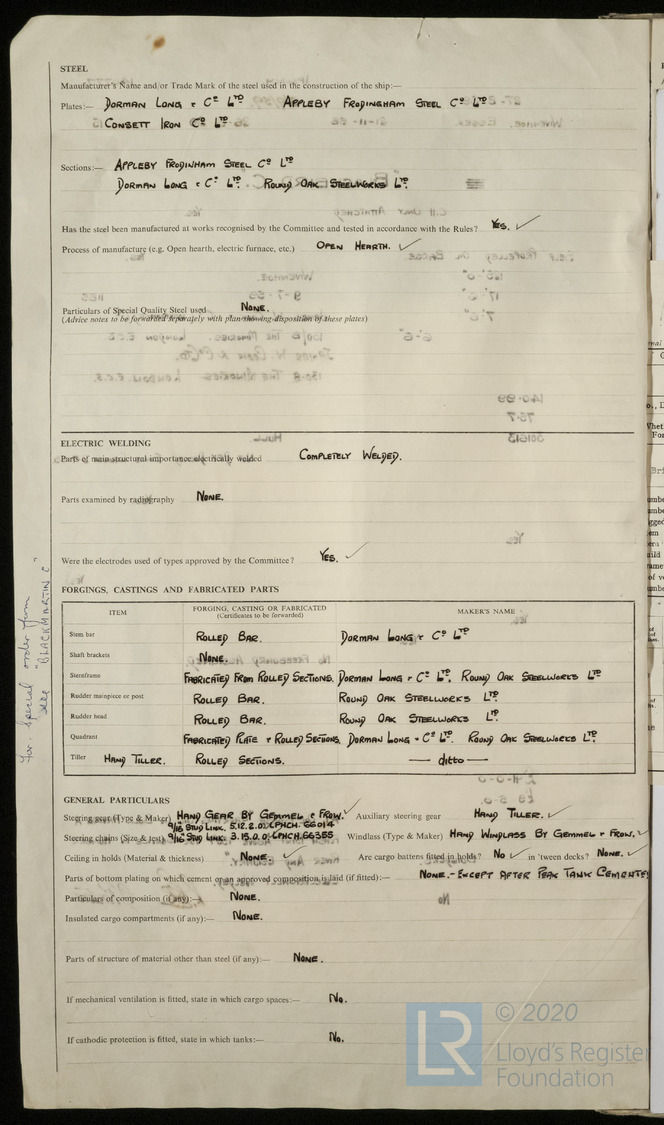 STEEL
Manufacturer's Name and/or Trade Mark of the steel used in the construction of the ship:—
Plates:— DORMAN LONG & Cº LTD APPLEBY FRODINGHAM STEEL Cº LTD
CONSETT IRON Cº LTD
Sections:— APPLEBY FRODINHAM STEEL Cº LTD
DORMAN LONG & Cº LTD. ROUND OAK STEELWORKS LTD.
Has the steel been manufactured at works recognised by the Committee and tested in accordance with the Rules? YES. ✓
Process of manufacture (e.g. Open hearth, electric furnace, etc.) OPEN HEARTH. ✓
Particulars of Special Quality Steel used NONE.
(Advice notes to be forwarded separately with plan showing disposition of these plates)
ELECTRIC WELDING
Parts of main structural importance electrically welded COMPLETELY WELDED.
Parts examined by radiography NONE.
Were the electrodes used of types approved by the Committee? YES. ✓
For special order from
see "BLACKMARTIN C"
FORGINGS, CASTINGS AND FABRICATED PARTS
ITEM FORGING, CASTING OR FABRICATED MAKER'S NAME
(Certificates to be forwarded)
Stem bar ROLLED BAR. DORMAN LONG & Cº LTD
Shaft brackets NONE.
Sternframe FABRICATED FROM ROLLED SECTIONS. DORMAN LONG & Cº LTD. ROUND OAK STEELWORKS LTD
Rudder mainpiece or post ROLLED BAR. ROUND OAK STEELWORKS LTD.
Rudder head ROLLED BAR. ROUND OAK STEELWORKS LTD.
Quadrant FABRICATED PLATE & ROLLED SECTIONS. DORMAN LONG & Cº LTD. ROUND OAK STEELWORKS LTD.
Tiller HAND TILLER. ROLLED SECTIONS. — ditto —
GENERAL PARTICULARS
Steering gear (Type & Maker) HAND GEAR BY GEMMEL & FROW. ✓ Auxiliary steering gear HAND TILLER. ✓
9/16" STUD LINK. 5.12.2.0. LPHCH. 66014
Steering chains (Size & test) 9/16" STUD LINK. 3.15.0.0. LPHCH. 66355 Windlass (Type & Maker) HAND WINDLASS BY GEMMEL & FROW. ✓
Ceiling in holds (Material & thickness) NONE. ✓ Are cargo battens fitted in holds? NO ✓ in 'tween decks? NONE. ✓
Parts of bottom plating on which cement or an approved composition is laid (if fitted):— NONE. - EXCEPT AFTER PEAK TANK CEMENTE
Particulars of composition (if any):— NONE.
Insulated cargo compartments (if any):— NONE.
Parts of structure of material other than steel (if any):— NONE.
If mechanical ventilation is fitted, state in which cargo spaces:— NO.
If cathodic protection is fitted, state in which tanks:— NO.
LR © 2020
Lloyd's Register
Foundation